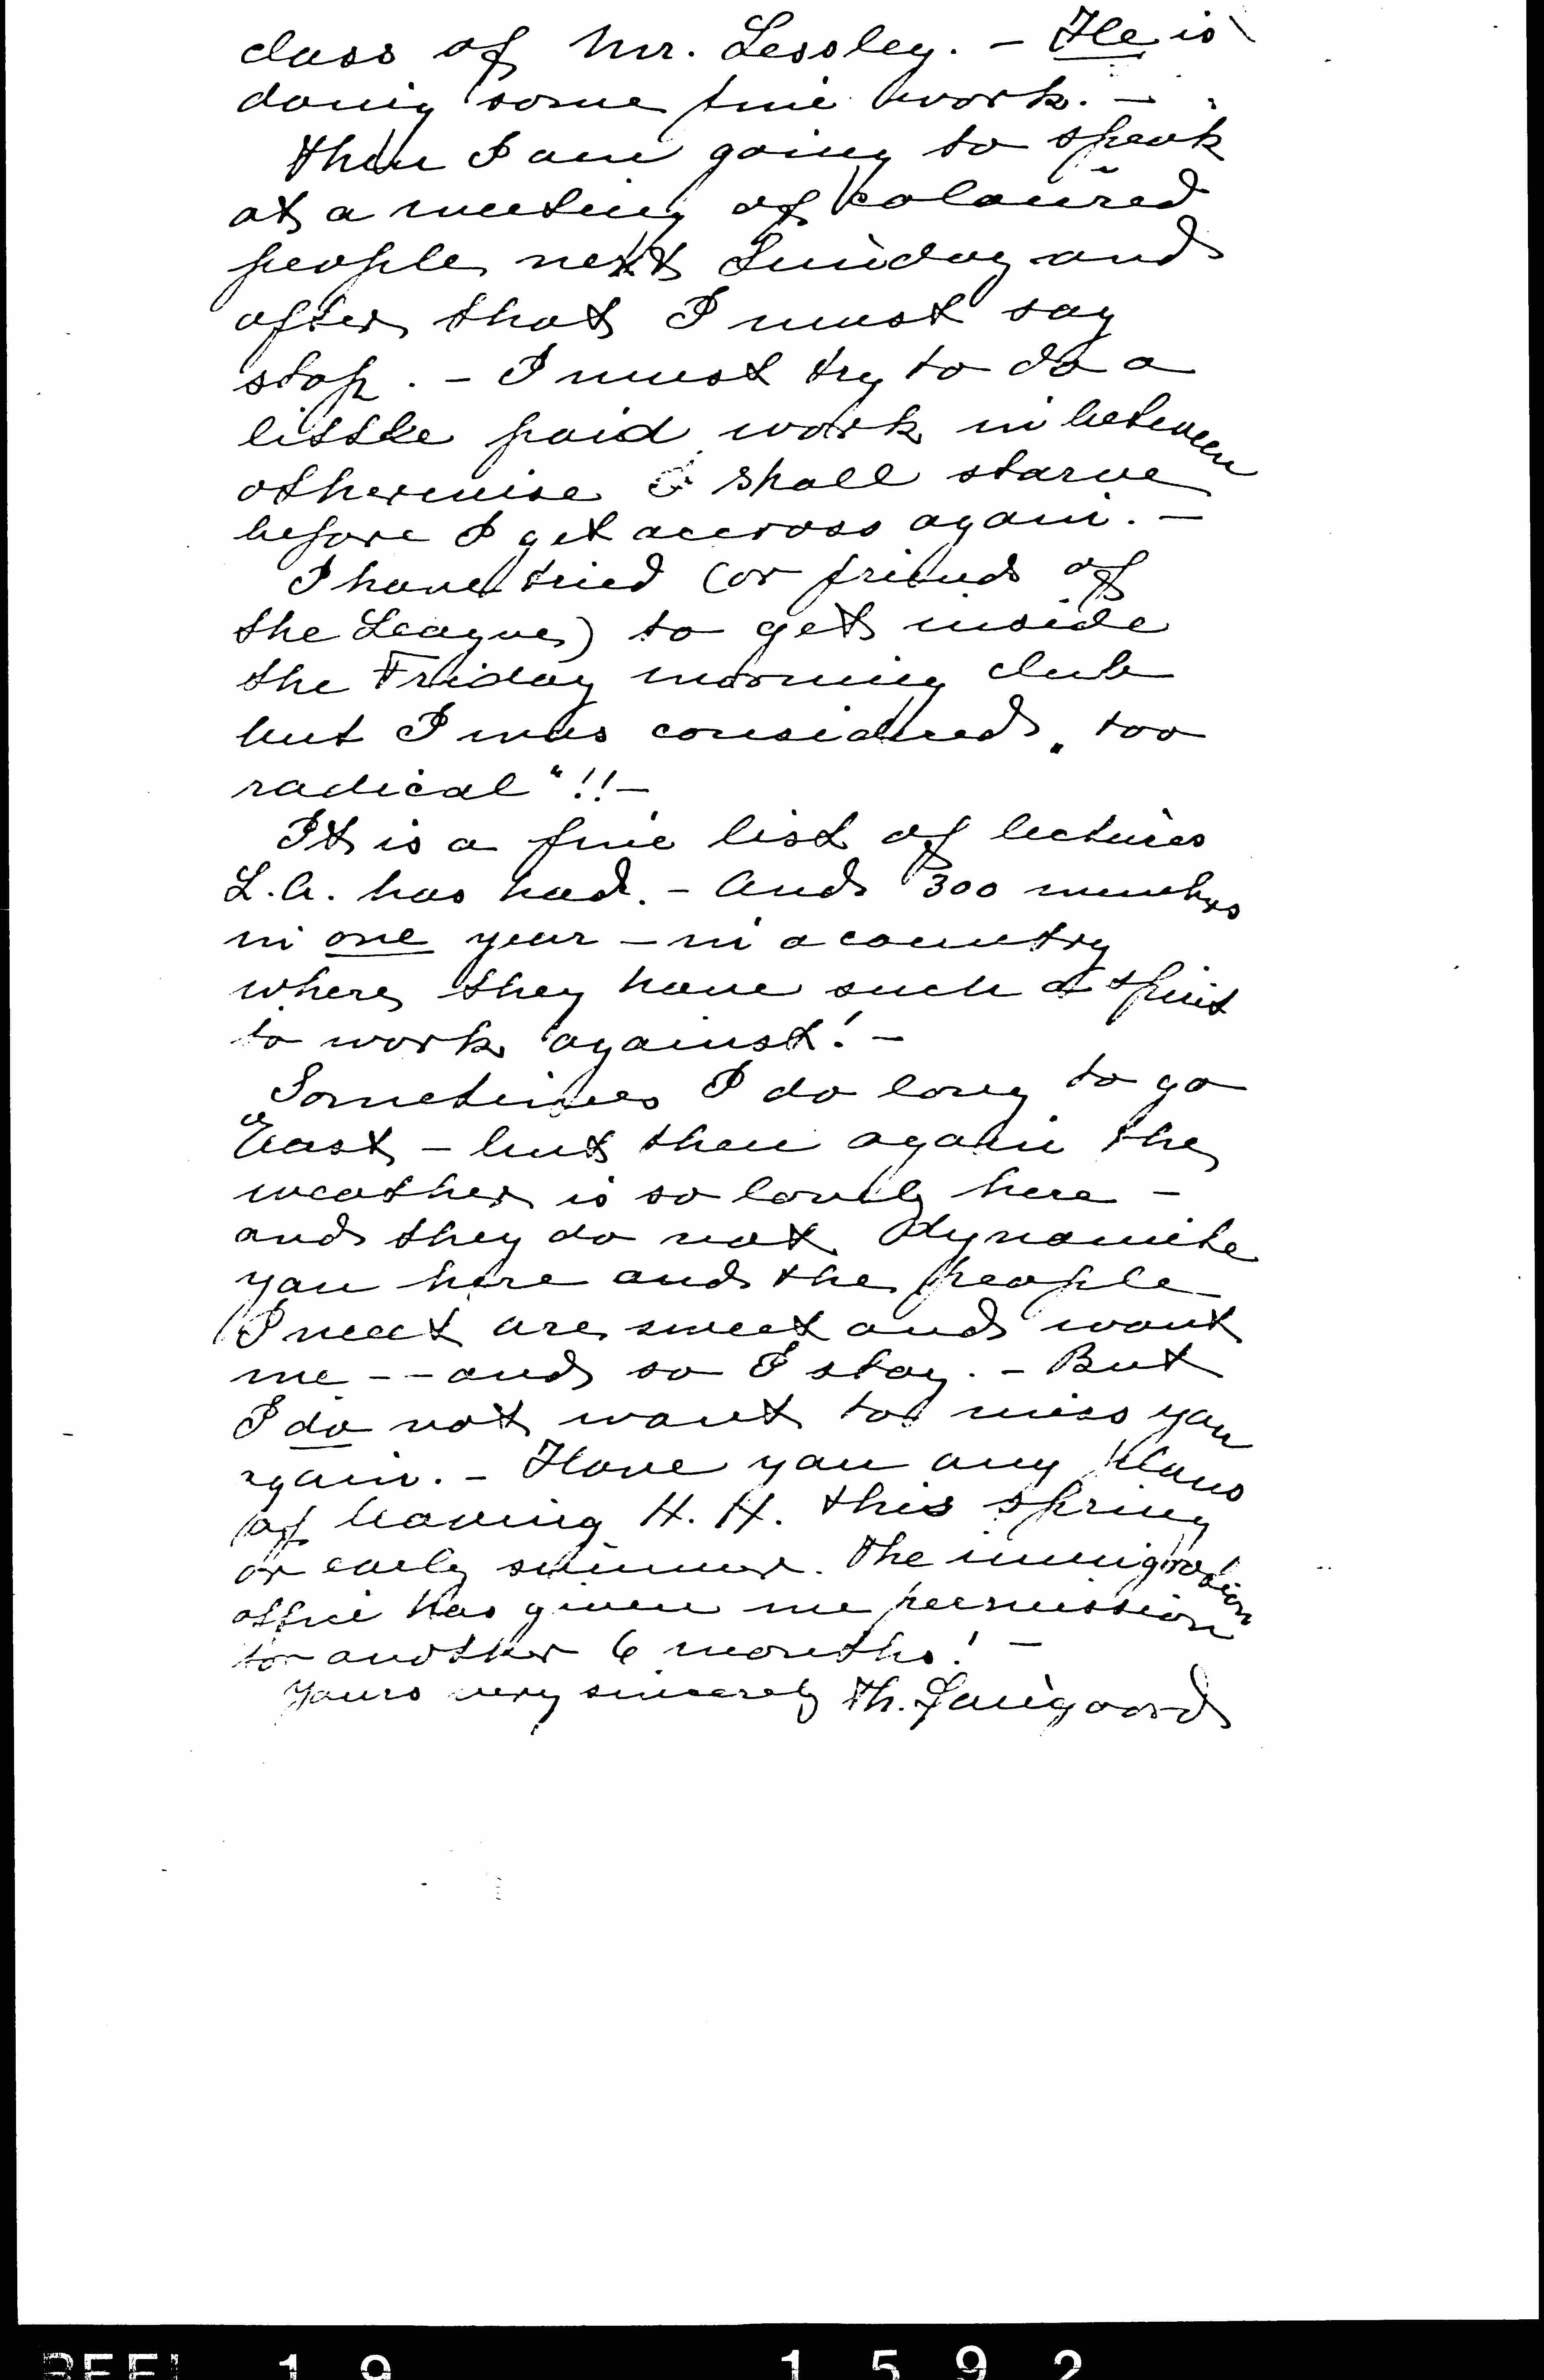 class of Mr. Lessley. - He is
doing some fine work. -
Then I am going to speak
at a meeting of coloured
people next Sunday and
after that I must say
stop. - I must try to do a
little paid work in between
otherwise I shall starve
before I get accross again. -
I have tried (or friends of
the League) to get inside
the Friday morning club
but I was considered „too
radical“!! -
It is a fine list of lectures
L.A. has had. - And 300 members
in one year - in a country
where they have such a spirit
to work against! -
Sometimes I do long to go
East - but then again the
weather is so lovely here -
and they do not dynamite
you here and the people
I meet are sweet and want
me -- and so I stay. - But
I do not want to miss you
again. - Have you any plans
of leaving H. H. this spring
or early summer. The immigration
office has given me permission
for another 6 months! -
Yours very sincerely Th. Daugaard
REEL 19 1592